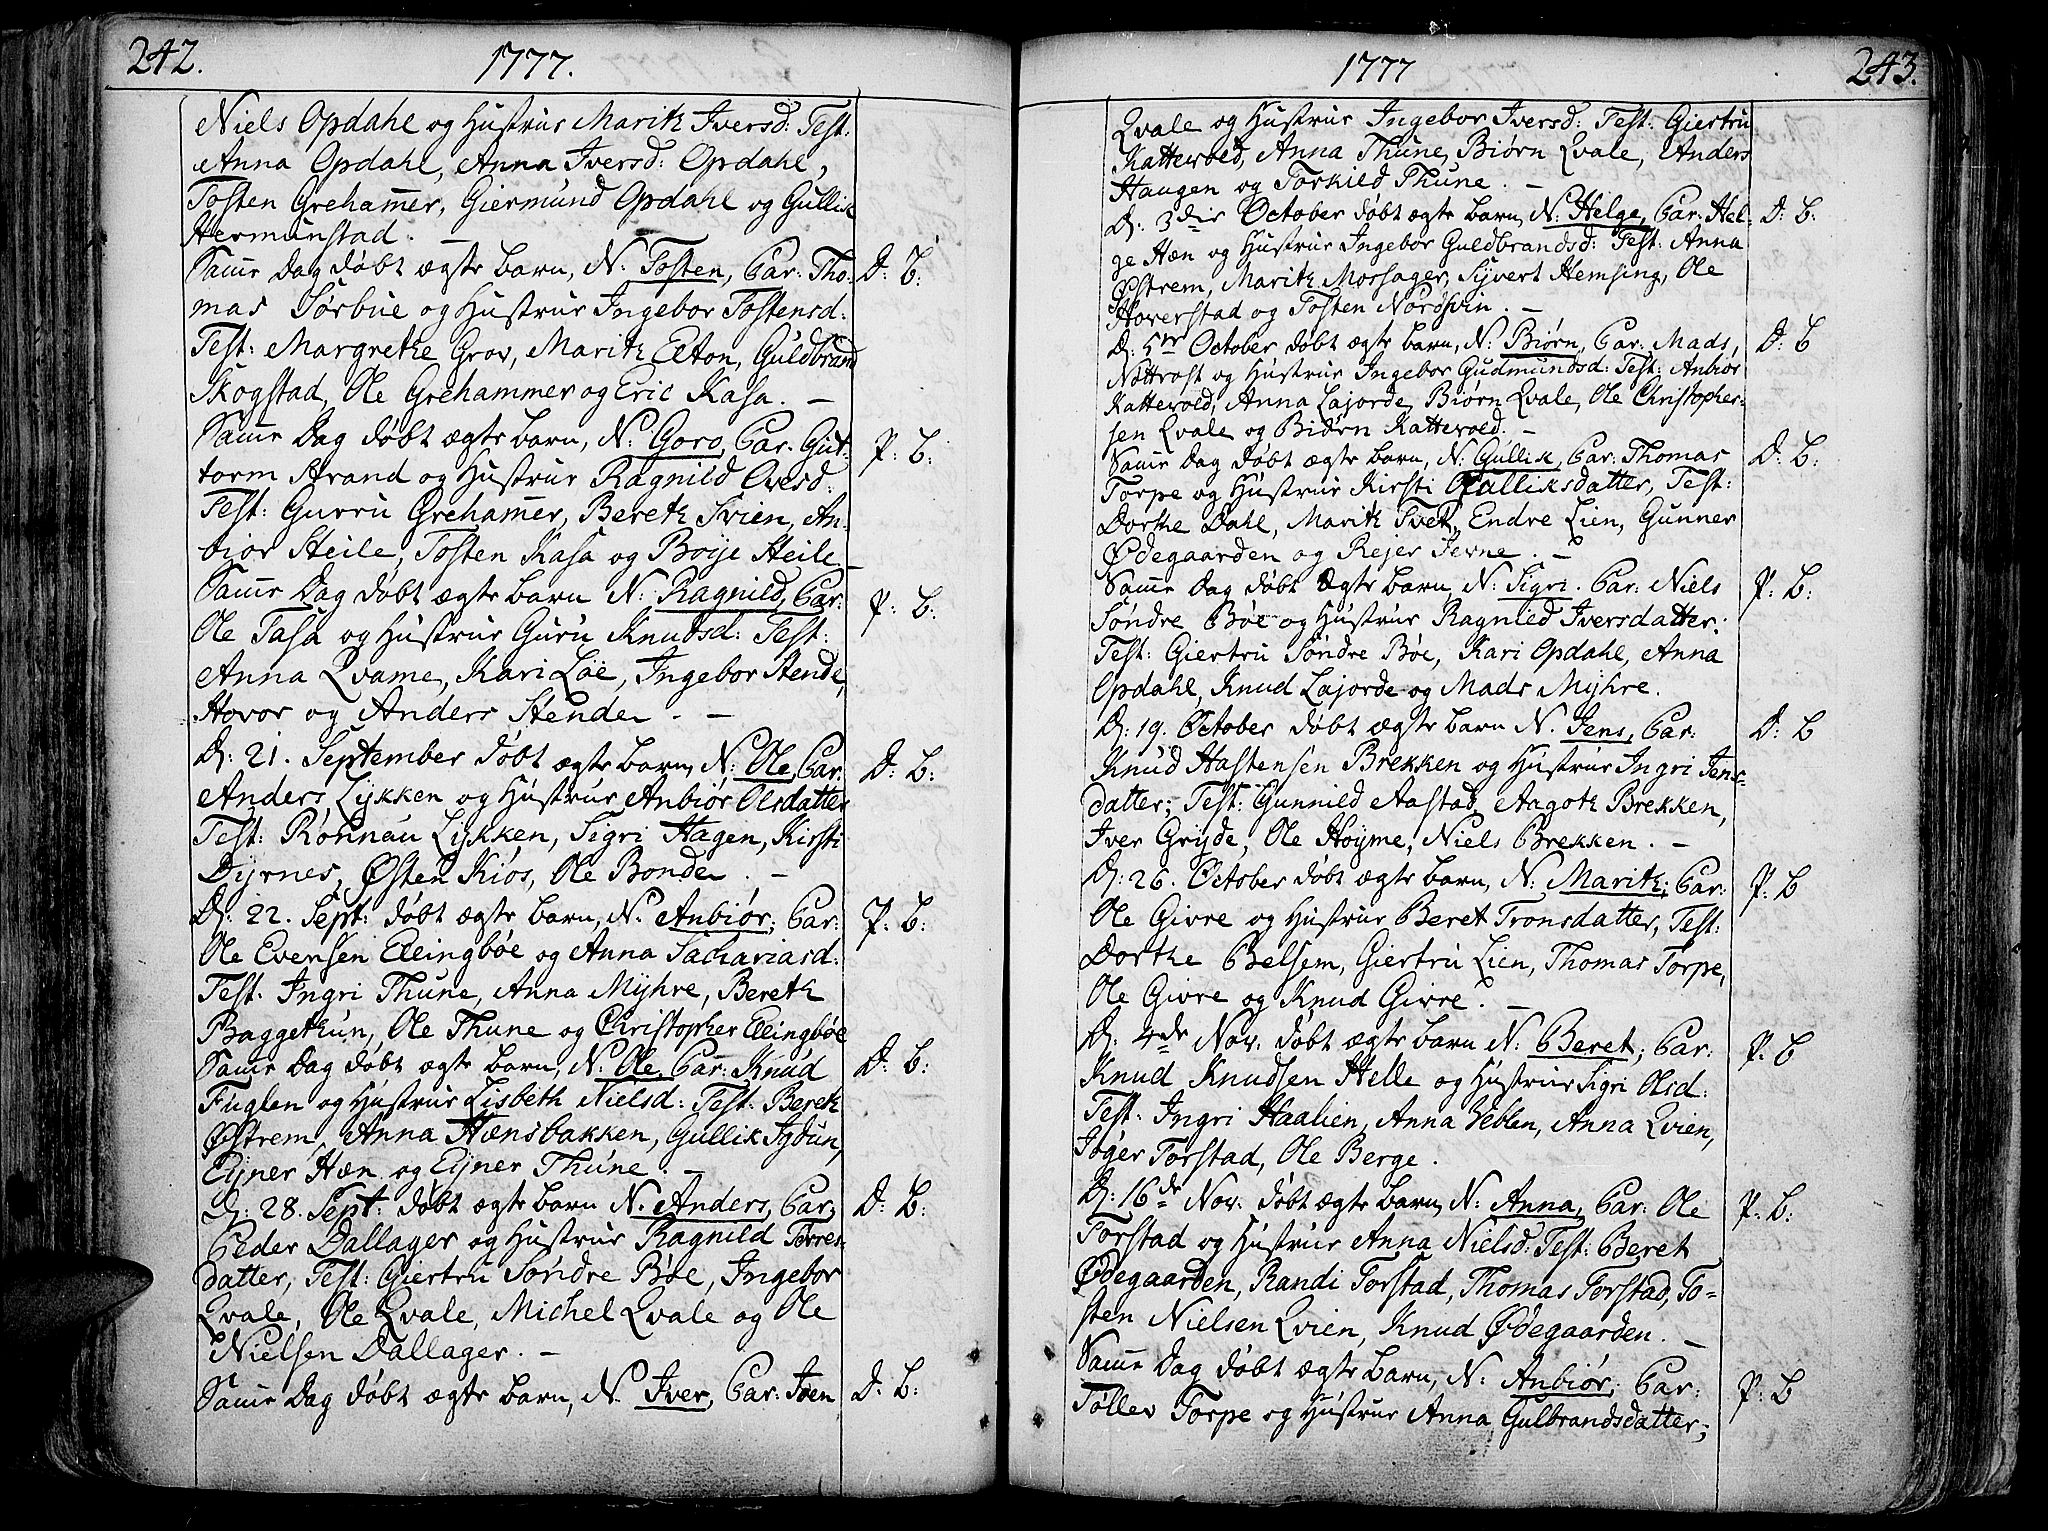 242.
1777.
Niels Opdahl og Hustrue Marith Iversd: Test:
Anna Opdahl, Anna Iversd: Opdahl,
Tosten Grehammer, Giermund Opdahl og Gullik
Hermunstad. —
Samme Dag døbt ægte barn, N: Tosten, Par: Tho- D: B:
mas Sørbüe og Hustrue Ingebor Tostensd:
Test: Margrethe Grov, Marith Elton, Guldbrand
Skogstad, Ole Grehammer og Eric Kasa. —
Samme Dag døbt ægte barn, N: Goro, Par. Gut- P: B:
torm Strand og Hustrue Ragnild Ovesd:
Test: Gurru Grehammer, Bereth Svien, An-
biør Steile, Tosten Kasa og Boÿe Steile —
Samme Dag døbt ægte barn N: Ragnild, Par: P: B:
Ole Tasa og Hustrue Guru Knudsd: Test:
Anna Qvame, Kari Løe, Ingebor Stende,
Hovor og Anders Stende. —
D: 21. September døbt ægte barn, N: Ole, Par: D: B:
Anders Lykken og Hustrue Anbiør Olsdatter
Test: Rønnau Lykken, Sigri Hagen, Kirsti
Dyrnes, Østen Kiøs, Ole Bonde. —
D: 22. Sept: døbt ægte barn, N. Anbiør; Par: P: B:
Ole Evensen Ellingbøe og Anna Sachariasd:
Test: Ingri Thune, Anna Myhre, Bereth
Baggethun, Ole Thune og Christopher Ellingbøe
Samme Dag døbt ægte barn, N. Ole, Par: Knud D: B:
Fuglen og Hustrue Lisbeth Nielsd: Test: Bereth
Østrem, Anna Hænsbakken, Gullik Jydun,
Ejner Hæn og Ejner Thune. —
D: 28. Sept: døbt ægte barn N. Anders, Par: D: B:
Peder Dallager og Hustrue Ragnild Torres-
datter, Test: Giertru Søndre Bøe, Ingebor
Qvale, Ole Qvale, Michel Qvale og Ole
Nielsen Dallager. —
Samme Dag døbt ægte barn, N. Iver, Par: Iven D: B:
1777
243.
Qvale og Hustrue Ingebor Iversd: Test: Giertru
Kattevold, Anna Thune, Biørn Qvale, Anders
Haugen og Torkild Thune. —
D: 3die October døbt ægte barn, N: Helge, Par: Hel- D: B:
ge Hæn og Hustrue Ingebor Guldbrandsd: Test: Anna
Østrem, Marith Mossager, Syvert Hemsing, Ole
Hoverstad og Tosten Nordsvin. —
D: 5te October døbt ægte barn, N: Biørn, Par: Mads, D: B
Nøttrost og Hustrue Ingebor Gudmundsd: Test: Anbiør
Kattevold, Anna Lajorde, Biørn Qvale, Ole Christopher-
sen Qvale og Biørn Kattevold. —
Samme Dag døbt ægte barn, N: Gullik, Par: Thomas D: B:
Torpe og Hustrue Kirsti Gulliksdatter, Test:
Dorthe Dahl, Marith Tvet, Endre Lien, Gunner
Ødegaarden og Rejer Jevne. —
Samme Dag døbt ægte barn, N: Sigri. Par: Niels P: B:
Søndre Bøe og Hustrue Ragnild Iversdatter:
Test: Giertru Søndre Bøe, Kari Opdahl, Anna
Opdahl, Knud Lajorde og Mads Myhre.
D: 19. October døbt ægte barn N. Jens, Par: D: B
Knud Hastensen Brekken og Hustrue Ingri Jens-
datter; Test: Gunnild Aastad, Aagoth Brekken,
Iver Gryde, Ole Høyme, Niels Brekken. —
D: 26. October døbt ægte barn, N: Marith; Par: P: B
Ole Givre og Hustrue Beret Tronsdatter, Test:
Dorthe Belsem, Giertru Lien, Thomas Torpe,
Ole Givre og Knud Givre. —
D: 4de Nov. døbt ægte barn N: Beret; Par: P: B
Knud Knudsen Helle og Hustrue Sigri Olsd:
Test: Ingri Haalien, Anna Veblen, Anna Qvien,
Iøger Torstad, Ole Berge.
D: 16de Nov. døbt ægte barn, N: Anna, Par: Ole P: B:
Torstad og Hustrue Anna Nielsd: Test: Beret
Ødegaarden, Randi Torstad, Thomas Torstad, To-
sten Nielsen Qvien, Knud Ødegaarden. —
Samme Dag døbt ægte barn, N: Anbiør; Par: P: B
Tøllev Torpe og Hustrue Anna Gulbrandsdatter;